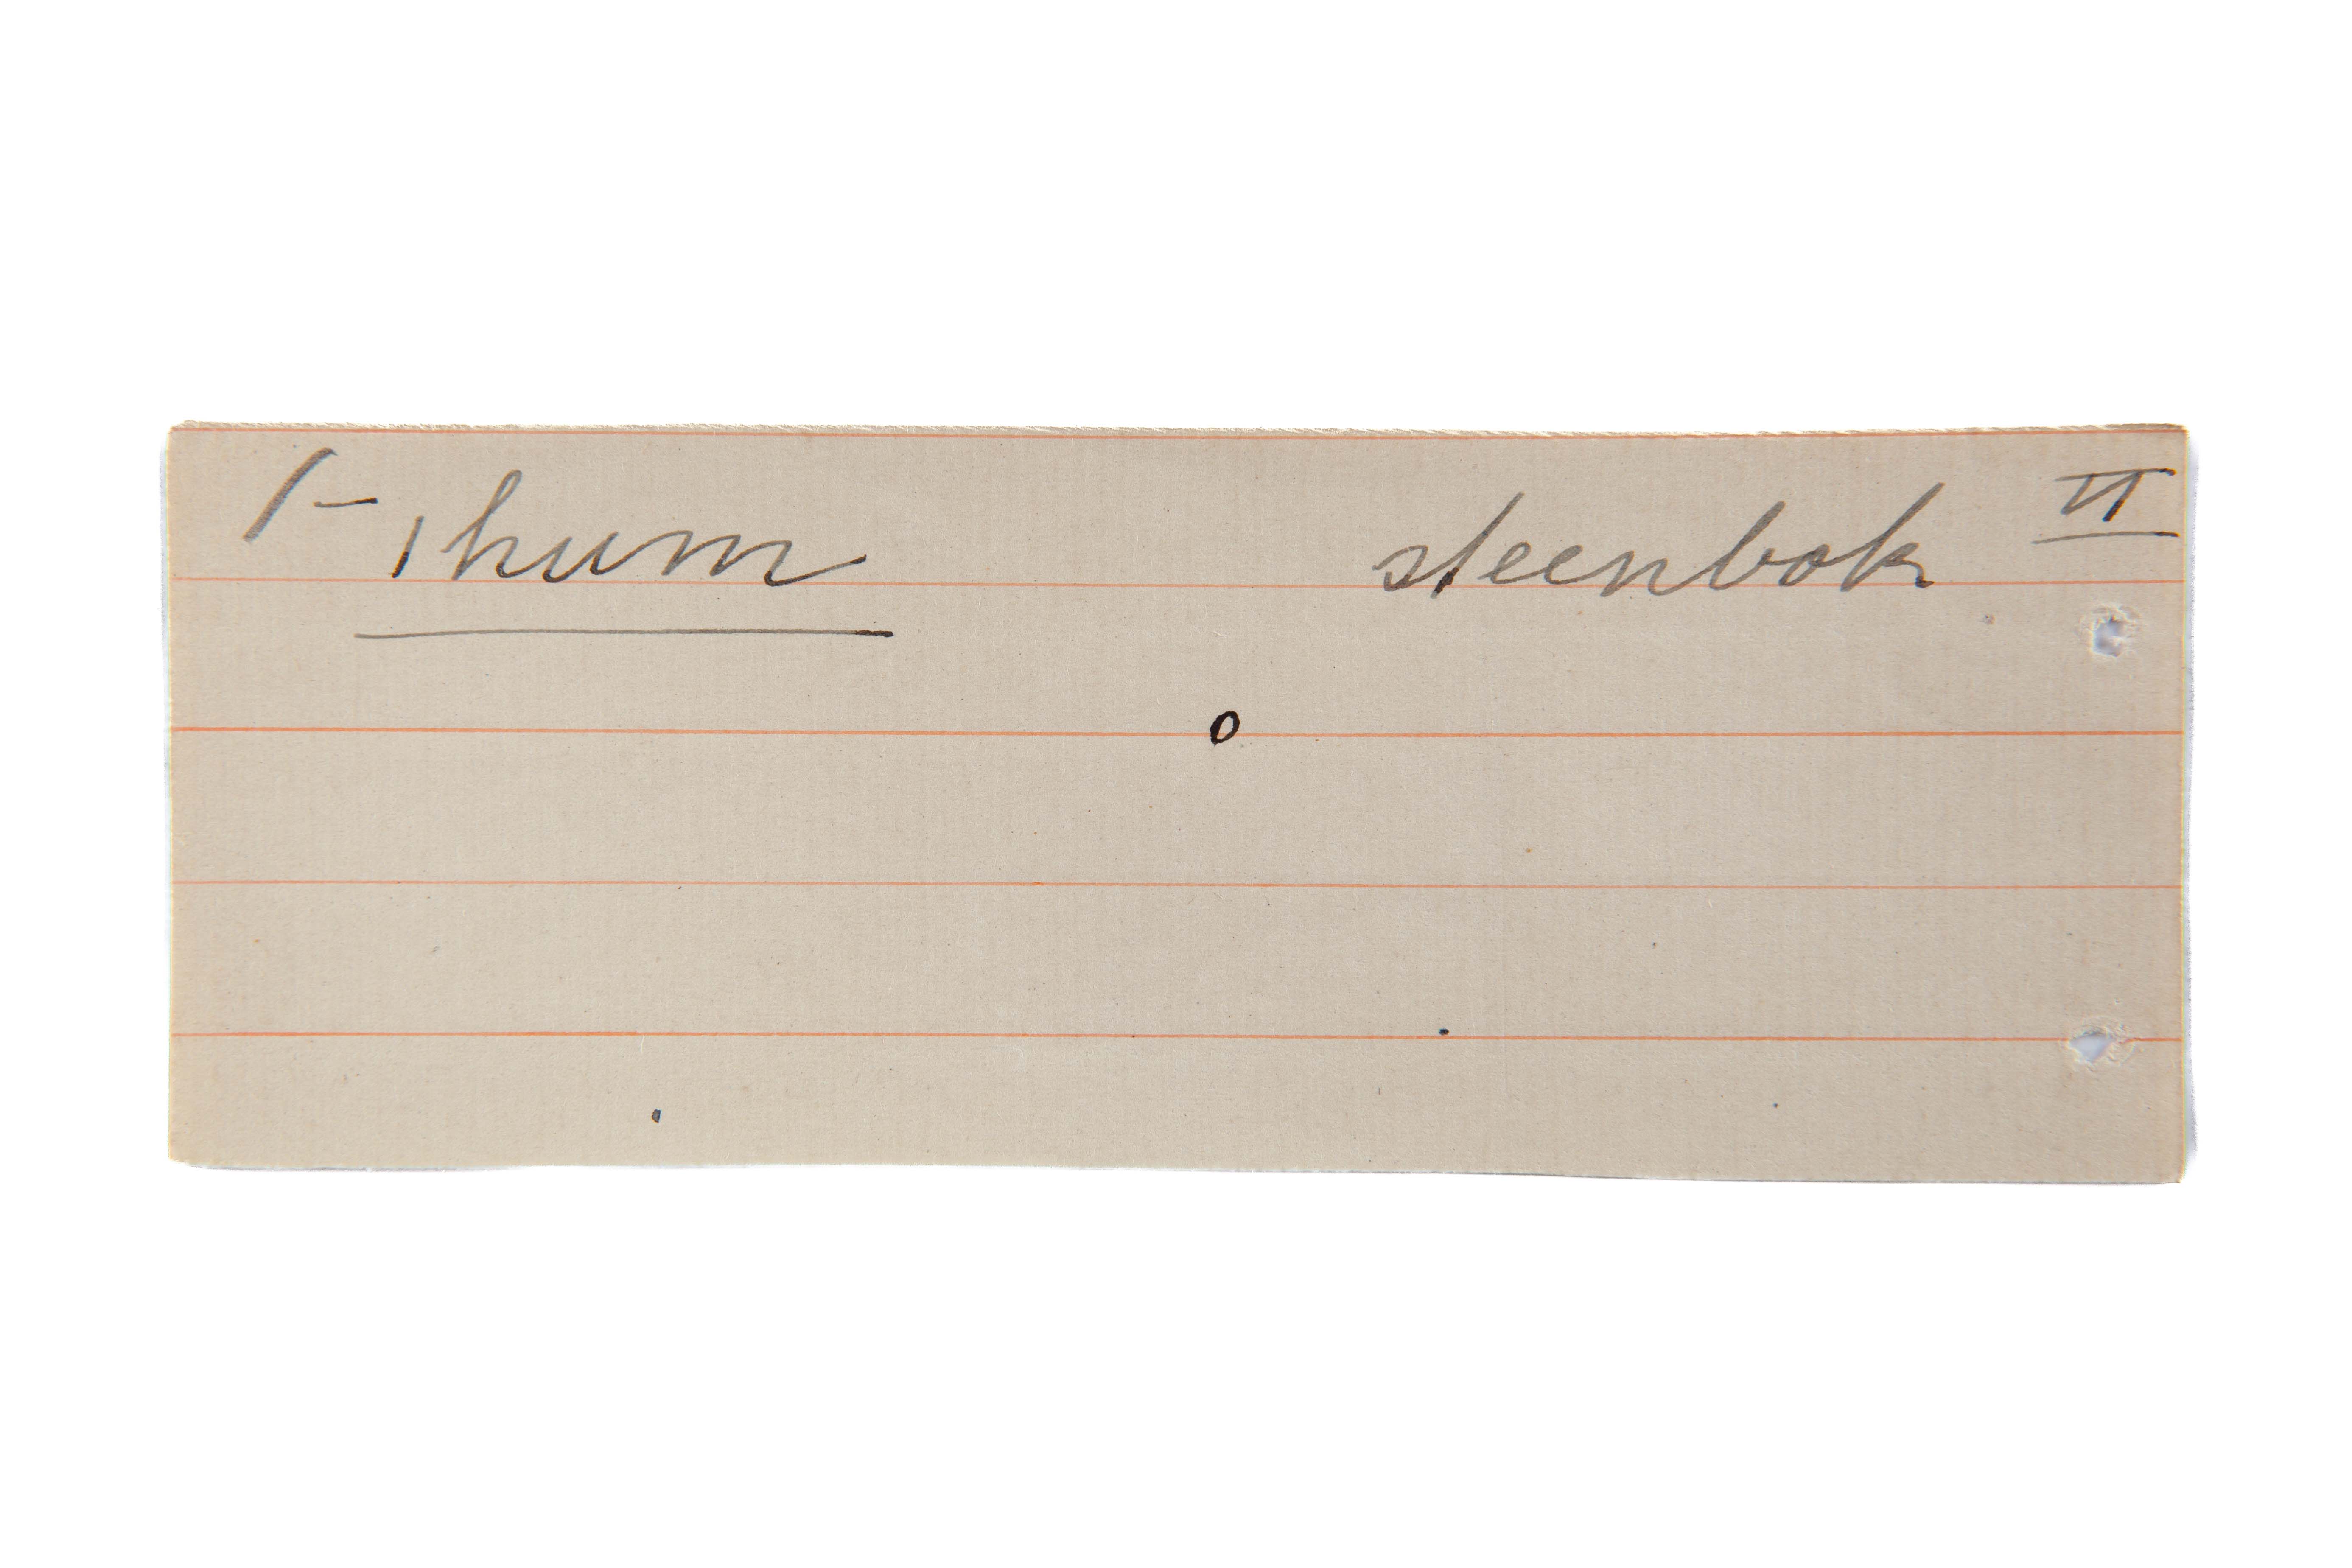 /- ǀhum steenbok II
o